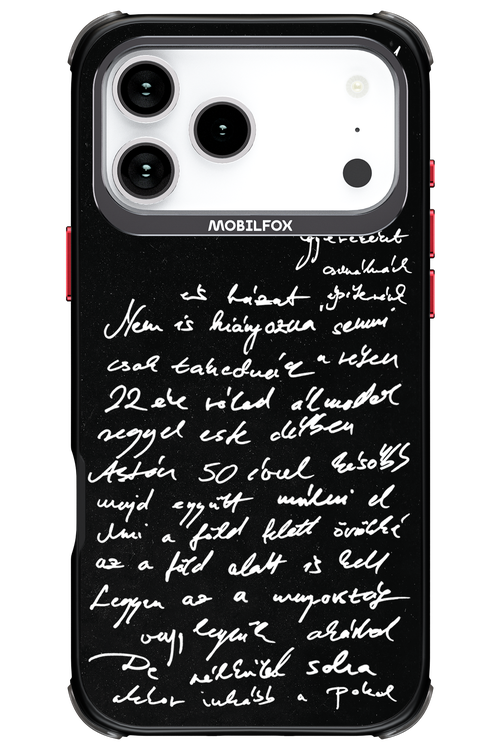 MOBILFOX
gyerekeket
csinálnánk
és házat építenénk
Nem is hiányozna semmi
csak takaródnánk a
22 éve rólad álmodok
reggel este délben
Aztán 50 évvel később
majd együtt múlni el
Ami a föld felett örökké
az a föld alatt is kell
Legyen az a mennyország
vagy legyünk akárhol
De nélküled soha
akkor inkább a Pokol